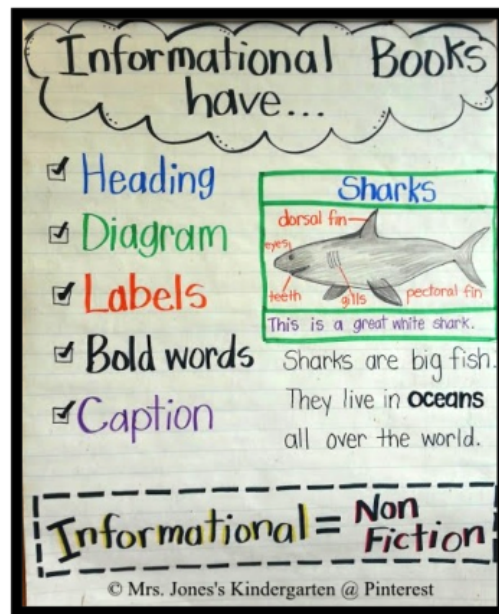 Informational Books
have...
Heading
Diagram
Labels
Bold words
Caption
Sharks
dorsal fin
eyes
teeth
gills
pectoral fin
This is a great white shark.
Sharks are big fish.
They live in oceans
all over the world.
Informational = Non
Fiction
© Mrs. Jones's Kindergarten @ Pinterest